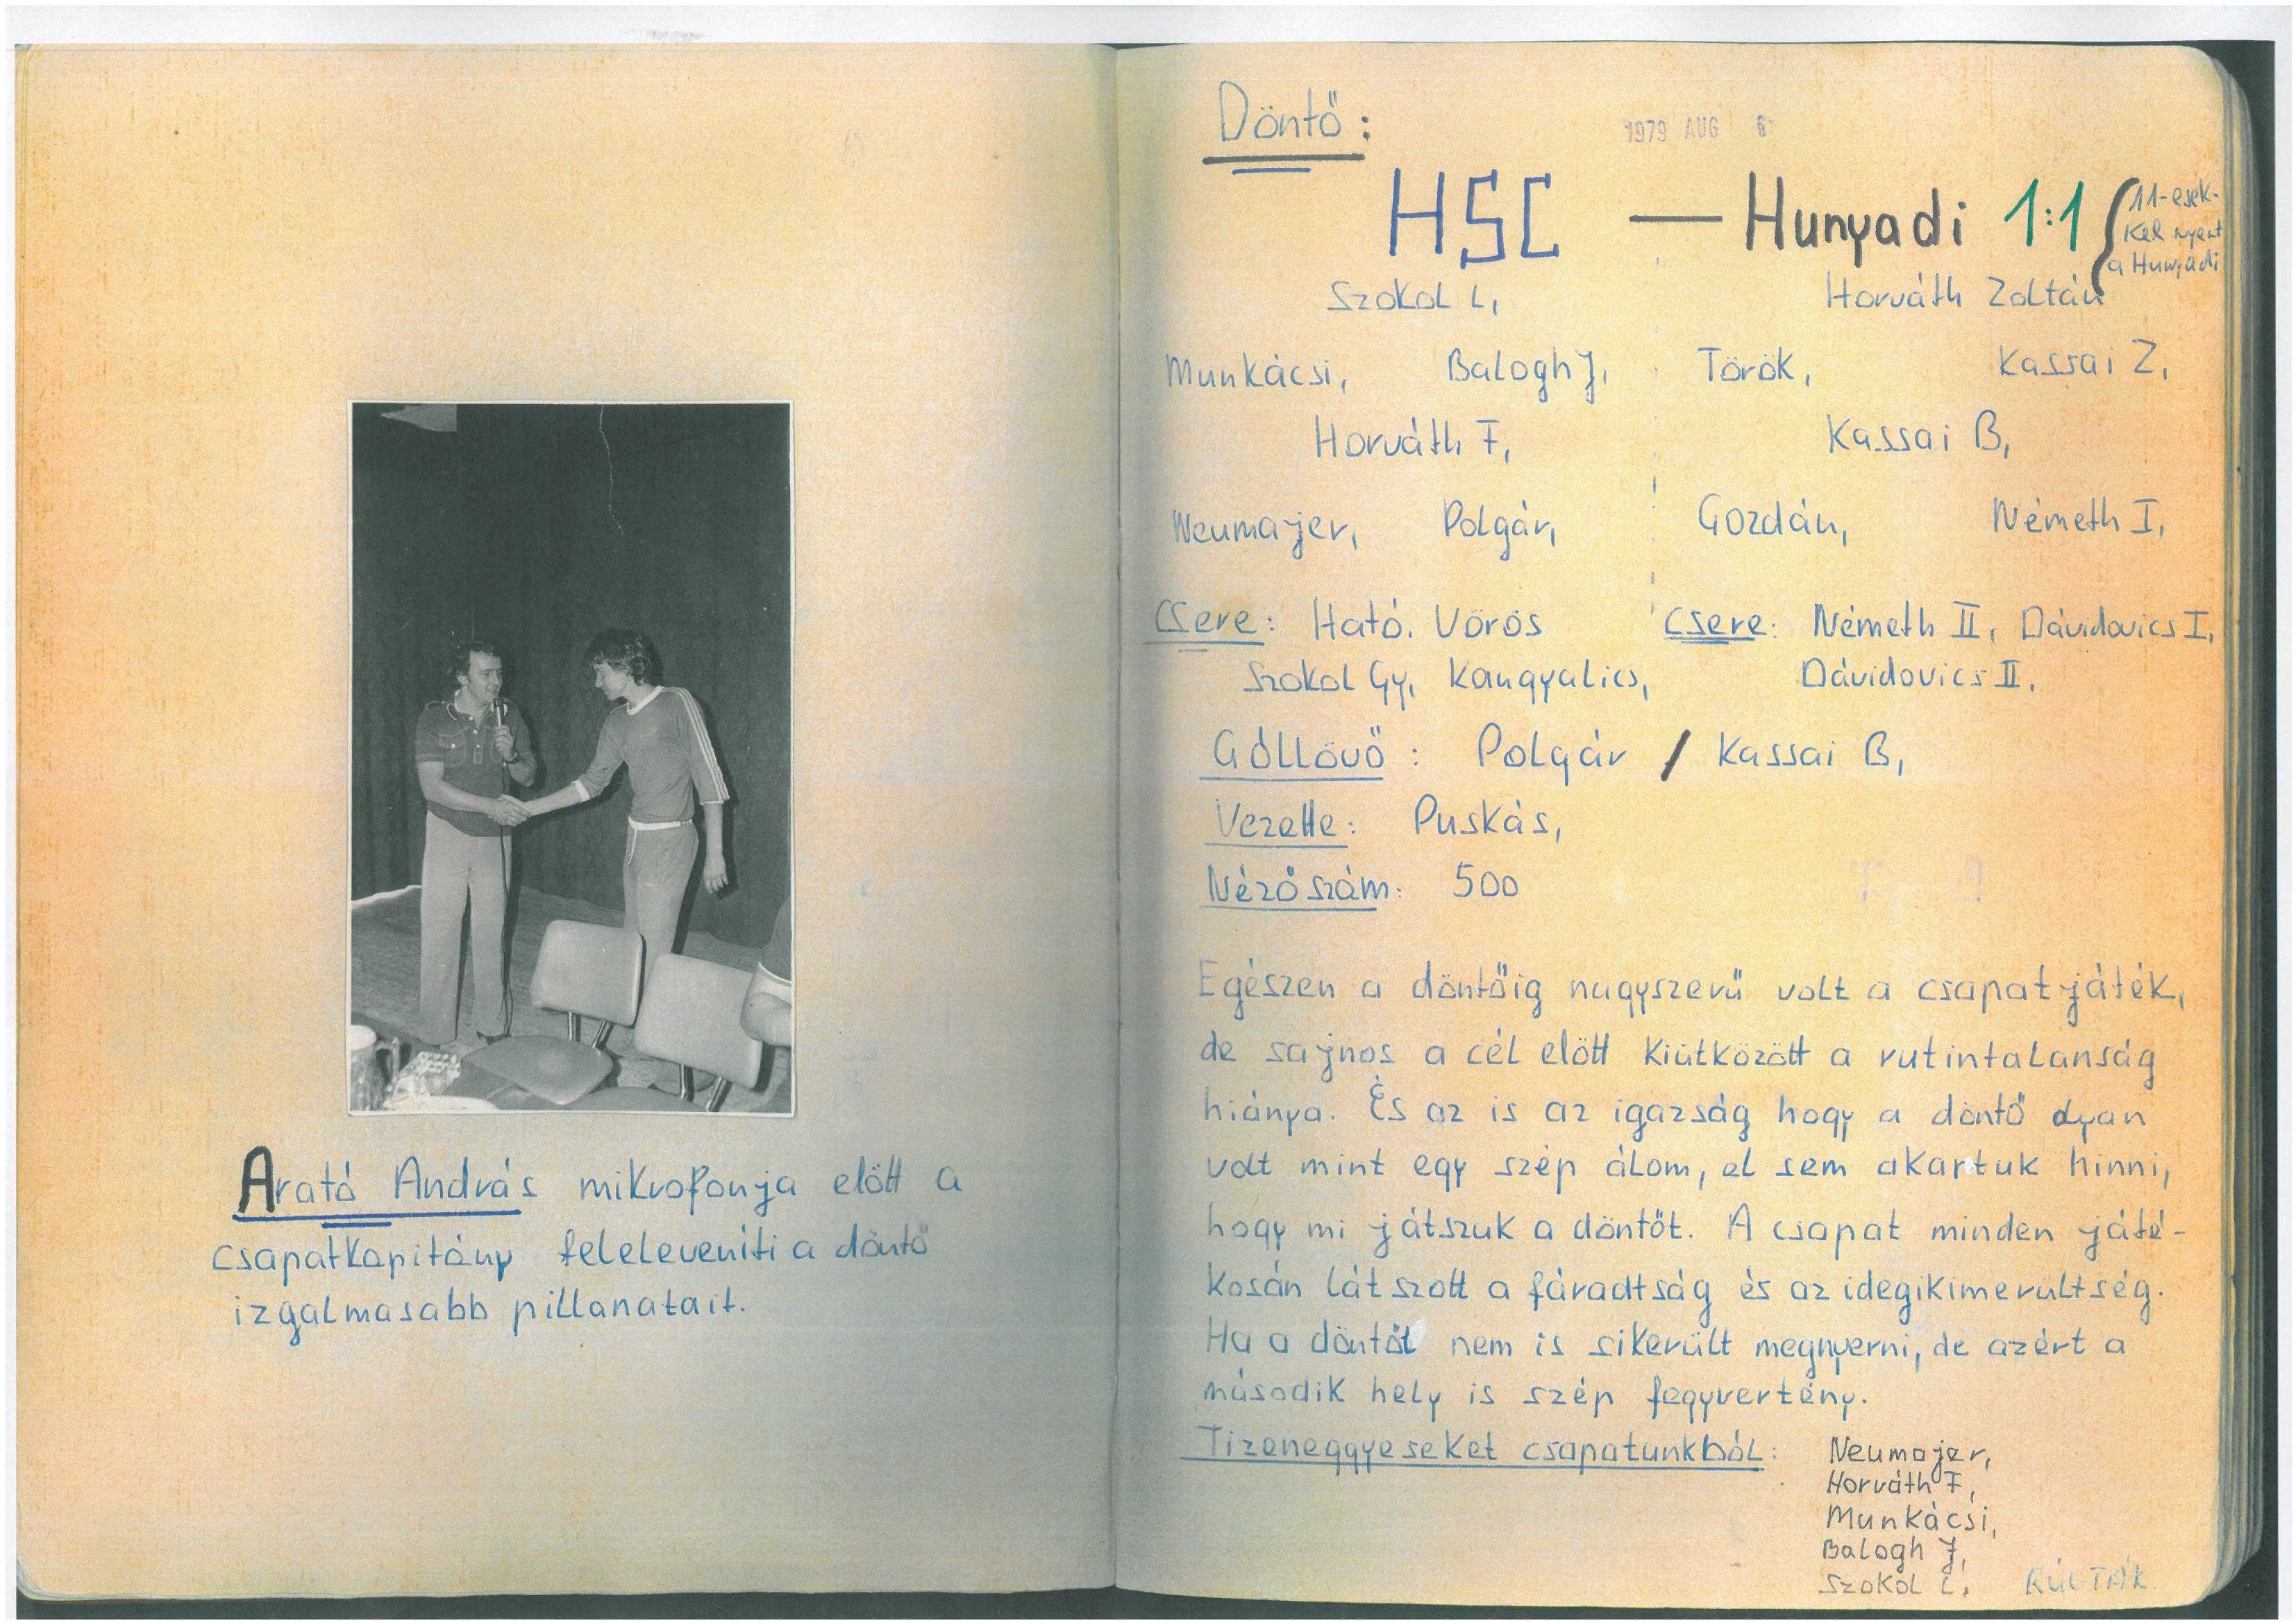 Arató András mikrofonja előtt a
csapatkapitány feleleveníti a döntő
izgalmasabb pillanatait.
Döntő:
1979 AUG 6
HSC — Hunyadi 1:1
11-esek-
kel nyert
a Hunyadi
Szokol L, Horváth Zoltán
Munkácsi, Balogh J, Török, Kassai Z,
Horváth F, Kassai B,
Neumajer, Polgár, Gozdán, Németh I,
Csere: Ható. Vörös Csere: Németh II, Dávidovics I,
Szokol Gy, Kangyalics, Dávidovics II.
Góllövő: Polgár / Kassai B,
Vezette: Puskás,
Nézőszám: 500
Egészen a döntőig nagyszerű volt a csapatjáték,
de sajnos a cél előtt kiütközött a rutintalanság
hiánya. És az is az igazság hogy a döntő olyan
volt mint egy szép álom, el sem akartuk hinni,
hogy mi játszuk a döntőt. A csapat minden játé-
kosán látszott a fáradtság és az idegikimerültség.
Ha a döntőt nem is sikerült megnyerni, de azért a
második hely is szép fegyvertény.
Tizeneggyeseket csapatunkból: Neumajer,
Horváth F,
Munkácsi,
Balogh J,
Szokol L, RÚGTÁK.